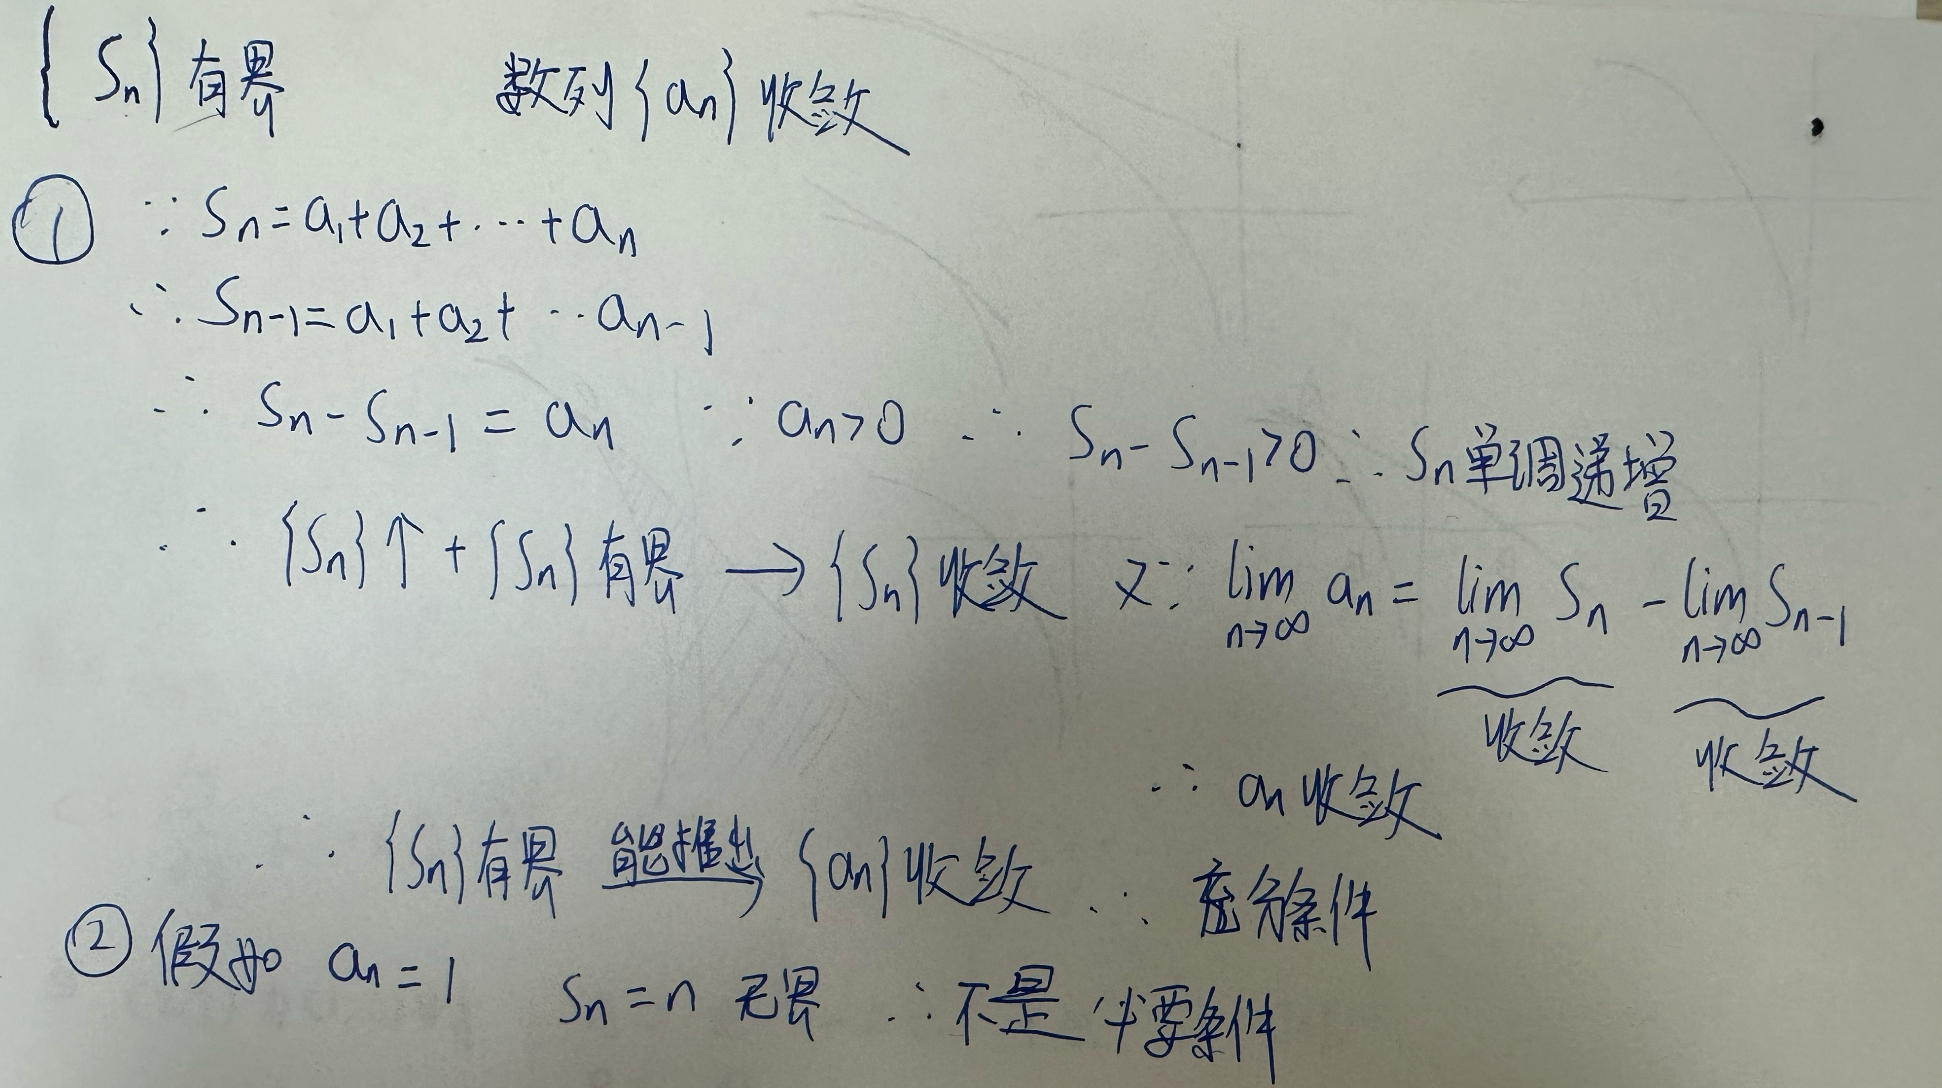 {Sn}有界 数列{an}收敛
① ∵ Sn=a1+a2+···+an
∴ Sn-1=a1+a2+··an-1
∴ Sn-Sn-1=an ∵ an>0 ∴ Sn-Sn-1>0 ∴ Sn单调递增
∴ {Sn}↑+{Sn}有界 → {Sn}收敛 又∵ lim n→∞ an = lim n→∞ Sn - lim n→∞ Sn-1
收敛 收敛
∴ an收敛
∴ {Sn}有界 能推出→ {an}收敛 ∴ 充分条件
② 假如 an=1 Sn=n 无界 ∴ 不是必要条件